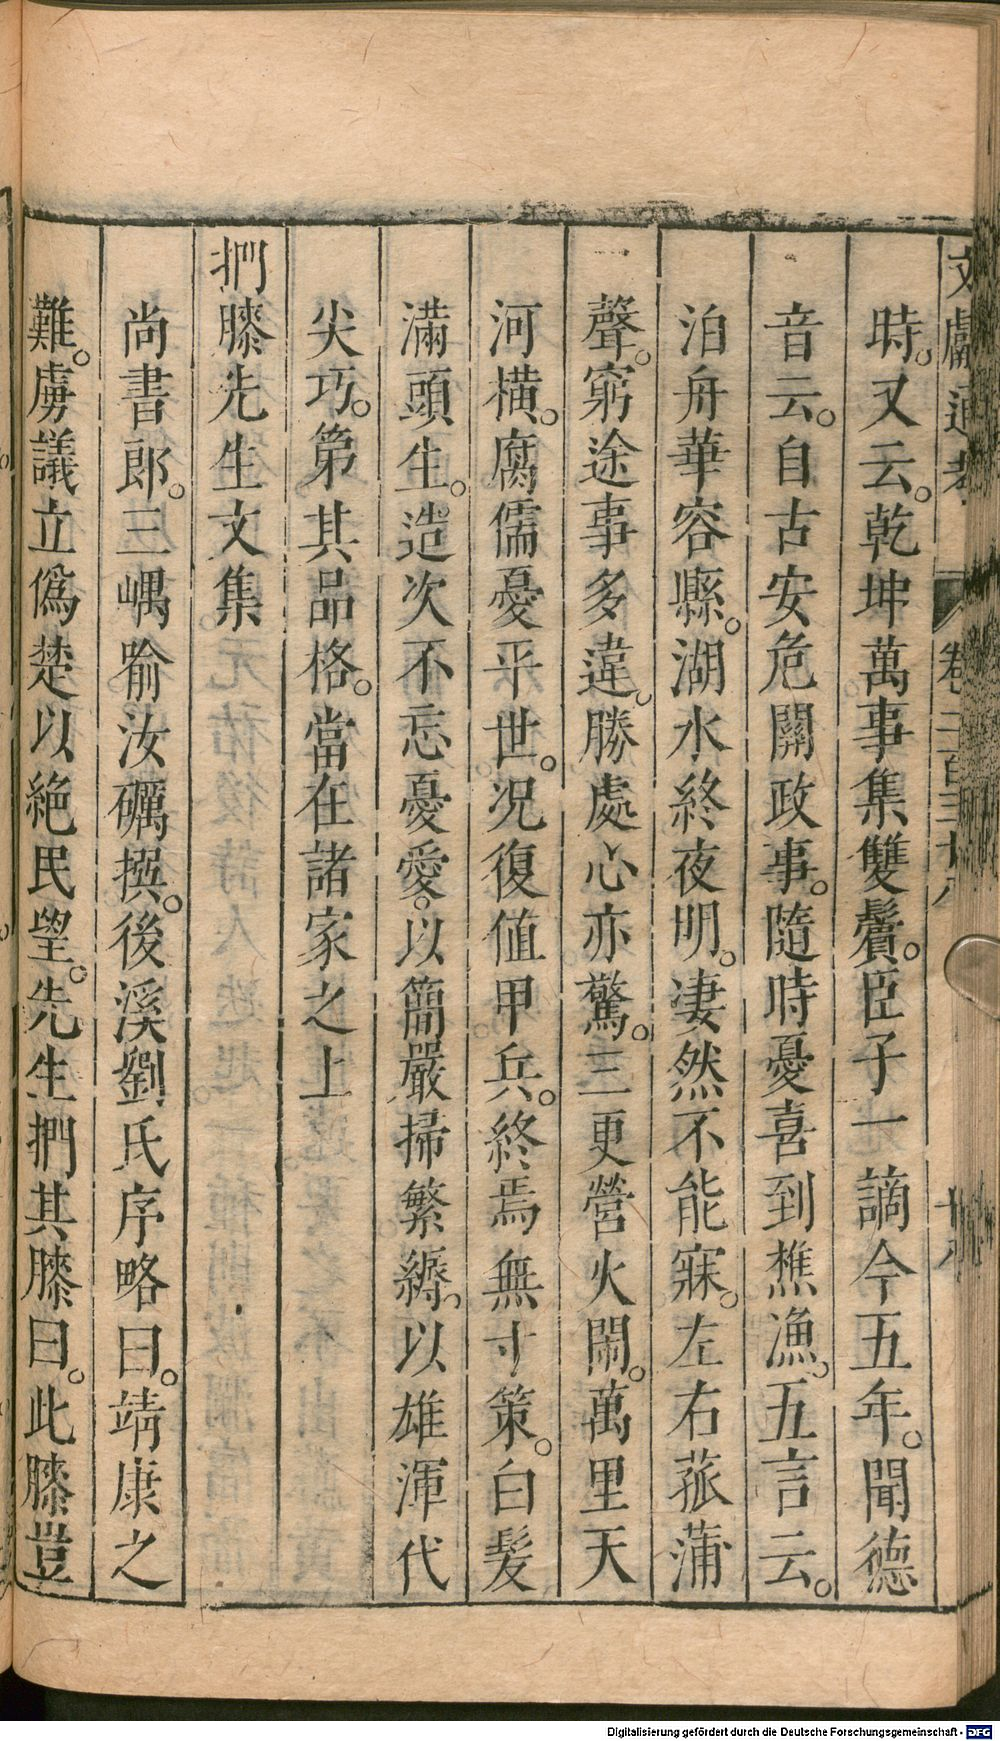 文獻通考 卷二百三十八 十八
時。又云。乾坤萬事集雙鬢。臣子一謫今五年。聞德
音云。自古安危關政事。隨時憂喜到樵漁。五言云。
泊舟華容縣。湖水終夜明。凄然不能寐。左右菰蒲
聲。窮途事多違。勝處心亦驚。三更營火鬧。萬里天
河橫。腐儒憂平世。況復値甲兵。終焉無寸策。白髮
滿頭生。造次不忘憂愛。以簡嚴掃繁縟。以雄渾代
尖巧。第其品格。當在諸家之上
捫膝先生文集
尚書郎。三嵎喻汝礪撰。後溪劉氏序略曰。靖康之
難。虜議立僞楚以絶民望。先生捫其膝曰。此膝豈
Digitalisierung gefördert durch die Deutsche Forschungsgemeinschaft - DFG